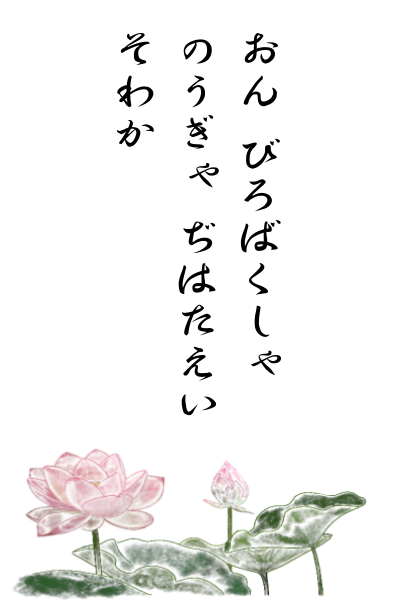 おん びろばくしゃ
のうぎゃ ぢはたえい
そわか